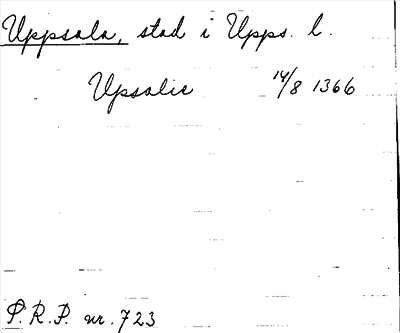 Uppsala, stad i Upps. l.
Upsalie 14/8 1366
P.R.P. nr. 723